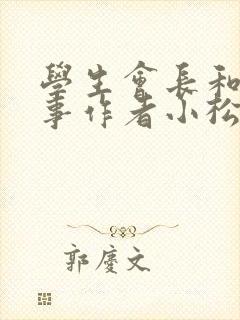 學生會長和
事作者小松
郭慶文